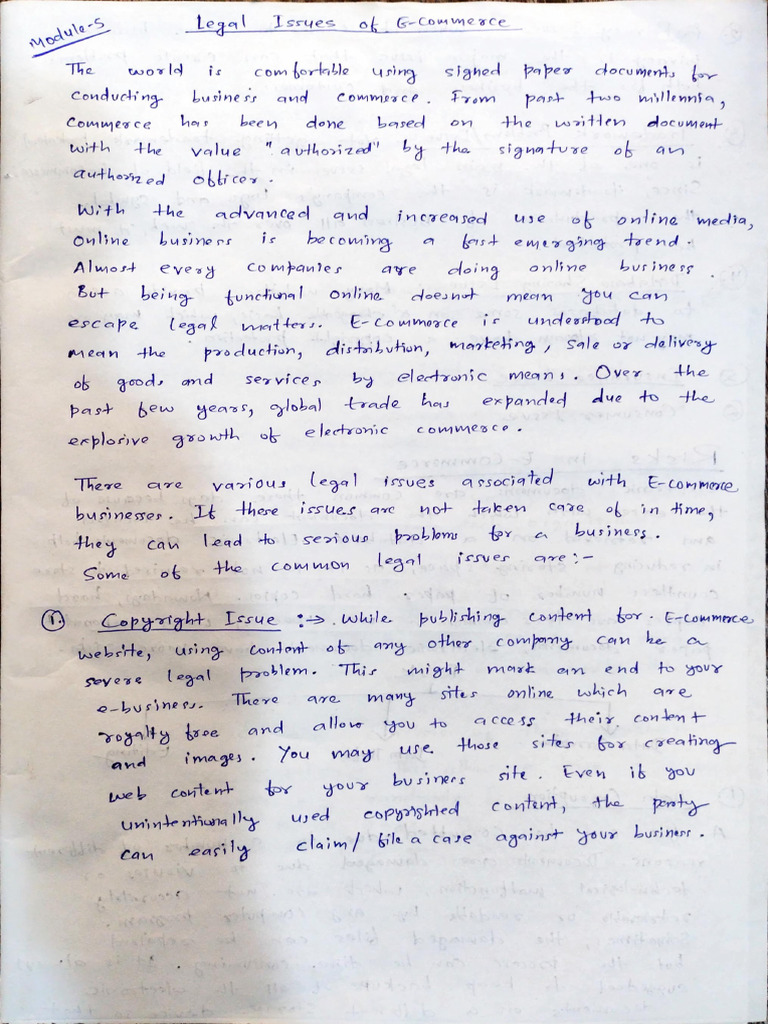 Module-5
Legal Issues of E-Commerce
The world is comfortable using signed paper documents for
conducting business and commerce. From past two millennia,
commerce has been done based on the written document
with the value "authorized" by the signature of an
authorized officer.
With the advanced and increased use of online media,
online business is becoming a fast emerging trend.
Almost every companies are doing online business.
But being functional online doesnot mean you can
escape legal matters. E-Commerce is understood to
mean the production, distribution, marketing, sale or delivery
of goods and services by electronic means. Over the
past few years, global trade has expanded due to the
explosive growth of electronic commerce.
There are various legal issues associated with E-commerce
businesses. If these issues are not taken care of in time,
they can lead to serious problems for a business.
Some of the common legal issues are :-
1. Copyright Issue :→ While publishing content for E-commerce
website, using content of any other company can be a
severe legal problem. This might mark an end to your
e-business. There are many sites online which are
royalty free and allow you to access their content
and images. You may use those sites for creating
web content for your business site. Even if you
unintentionally used copyrighted content, the party
can easily claim/ file a case against your business.